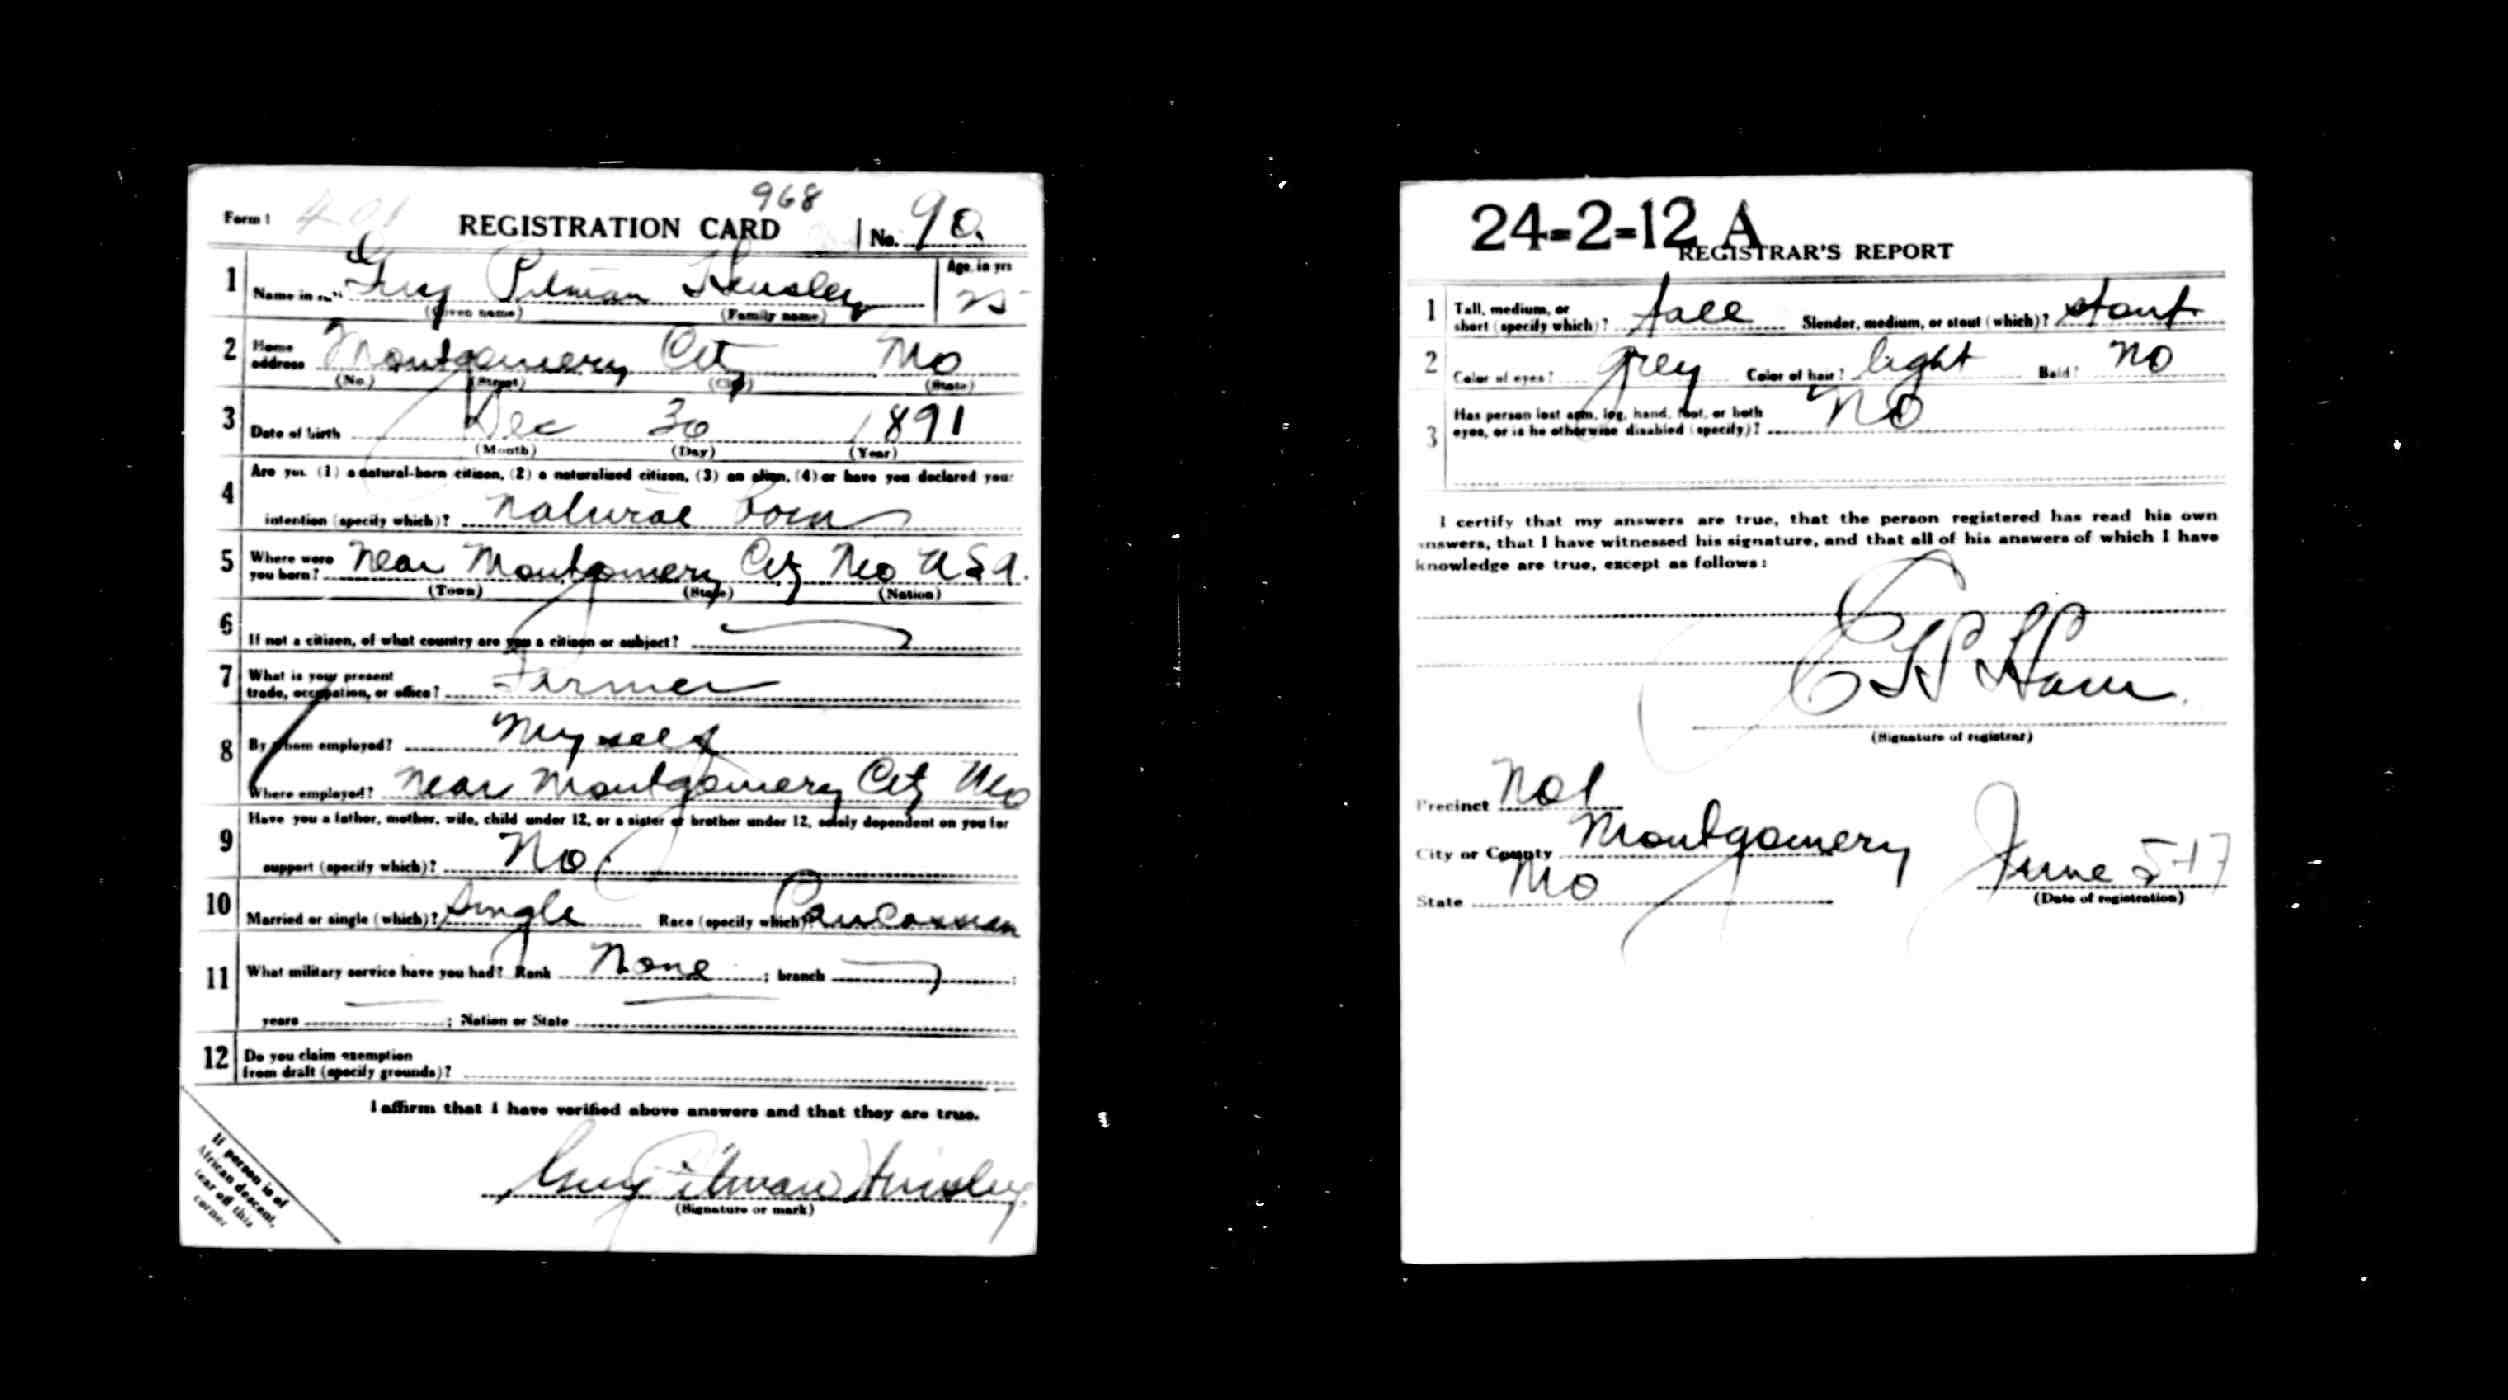 968
Form 1 401 REGISTRATION CARD No. 90
1 Name in full Guy Pitman Hensley Age, in yrs 25
(Given name) (Family name)
2 Home address Montgomery City Mo
(No.) (Street) (City) (State)
3 Date of birth Dec 30 1891
(Month) (Day) (Year)
4 Are you (1) a natural-born citizen, (2) a naturalized citizen, (3) an alien, (4) or have you declared your
intention (specify which)? Natural born
5 Where were you born? Near Montgomery City Mo U S A.
(Town) (State) (Nation)
6 If not a citizen, of what country are you a citizen or subject?
7 What is your present
trade, occupation, or office? Farmer
8 By whom employed? Myself
Where employed? Near Montgomery City Mo
9 Have you a father, mother, wife, child under 12, or a sister or brother under 12, solely dependent on you for
support (specify which)? No
10 Married or single (which)? Single Race (specify which)? Caucasian
11 What military service have you had? Rank None ; branch ;
years ; Nation or State
12 Do you claim exemption
from draft (specify grounds)?
I affirm that I have verified above answers and that they are true.
Guy Pitman Hensley
(Signature or mark)
If person is of
African descent,
tear off this
corner
24-2-12 A
REGISTRAR'S REPORT
1 Tall, medium, or
short (specify which)? tall Slender, medium, or stout (which)? stout
2 Color of eyes? Grey Color of hair? light Bald? No
3 Has person lost arm, leg, hand, foot, or both
eyes, or is he otherwise disabled (specify)? No
I certify that my answers are true, that the person registered has read his own
answers, that I have witnessed his signature, and that all of his answers of which I have
knowledge are true, except as follows:
Ham
(Signature of registrar)
Precinct No 1
City or County Montgomery
State Mo
June 5-17
(Date of registration)